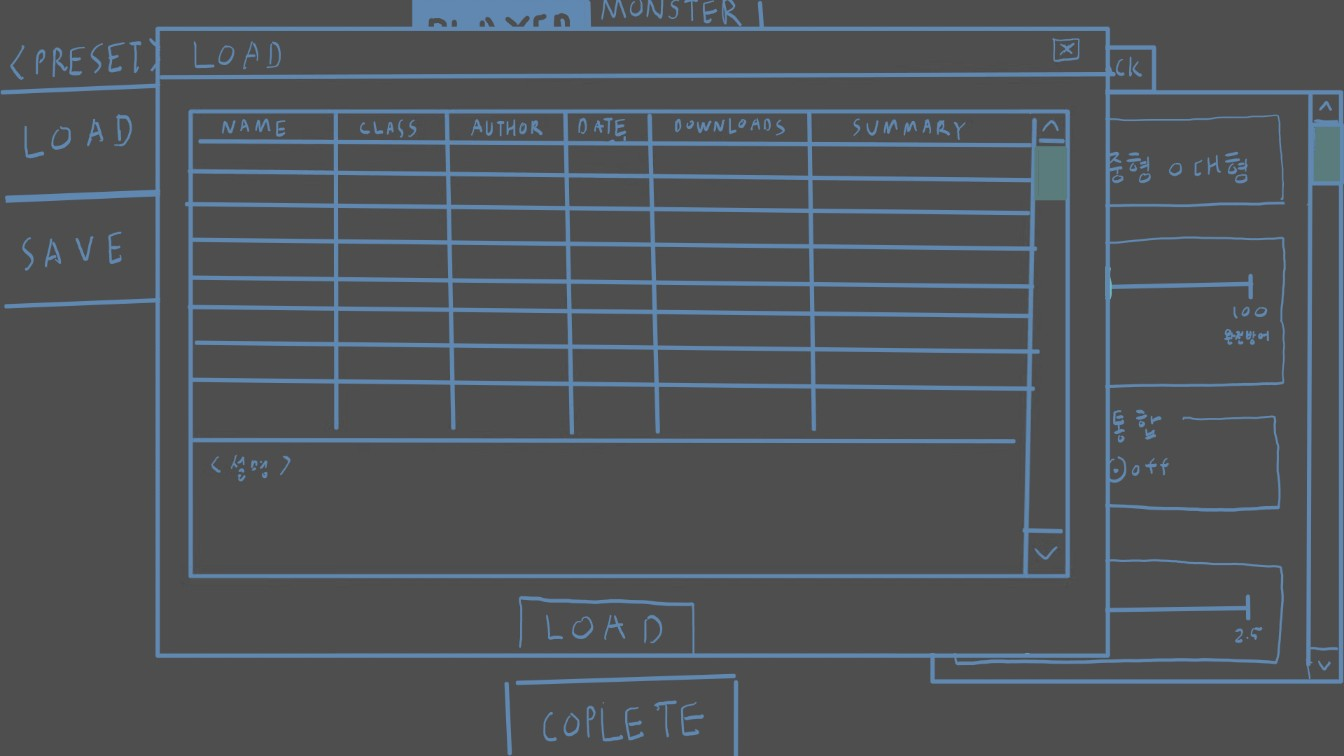 PLAYER MONSTER
<PRESET>
LOAD
SAVE
LOAD
NAME CLASS AUTHOR DATE DOWNLOADS SUMMARY
<설명>
LOAD
COPLETE
CK
중형 o 대형
100
완전방어
통합
off
2.5